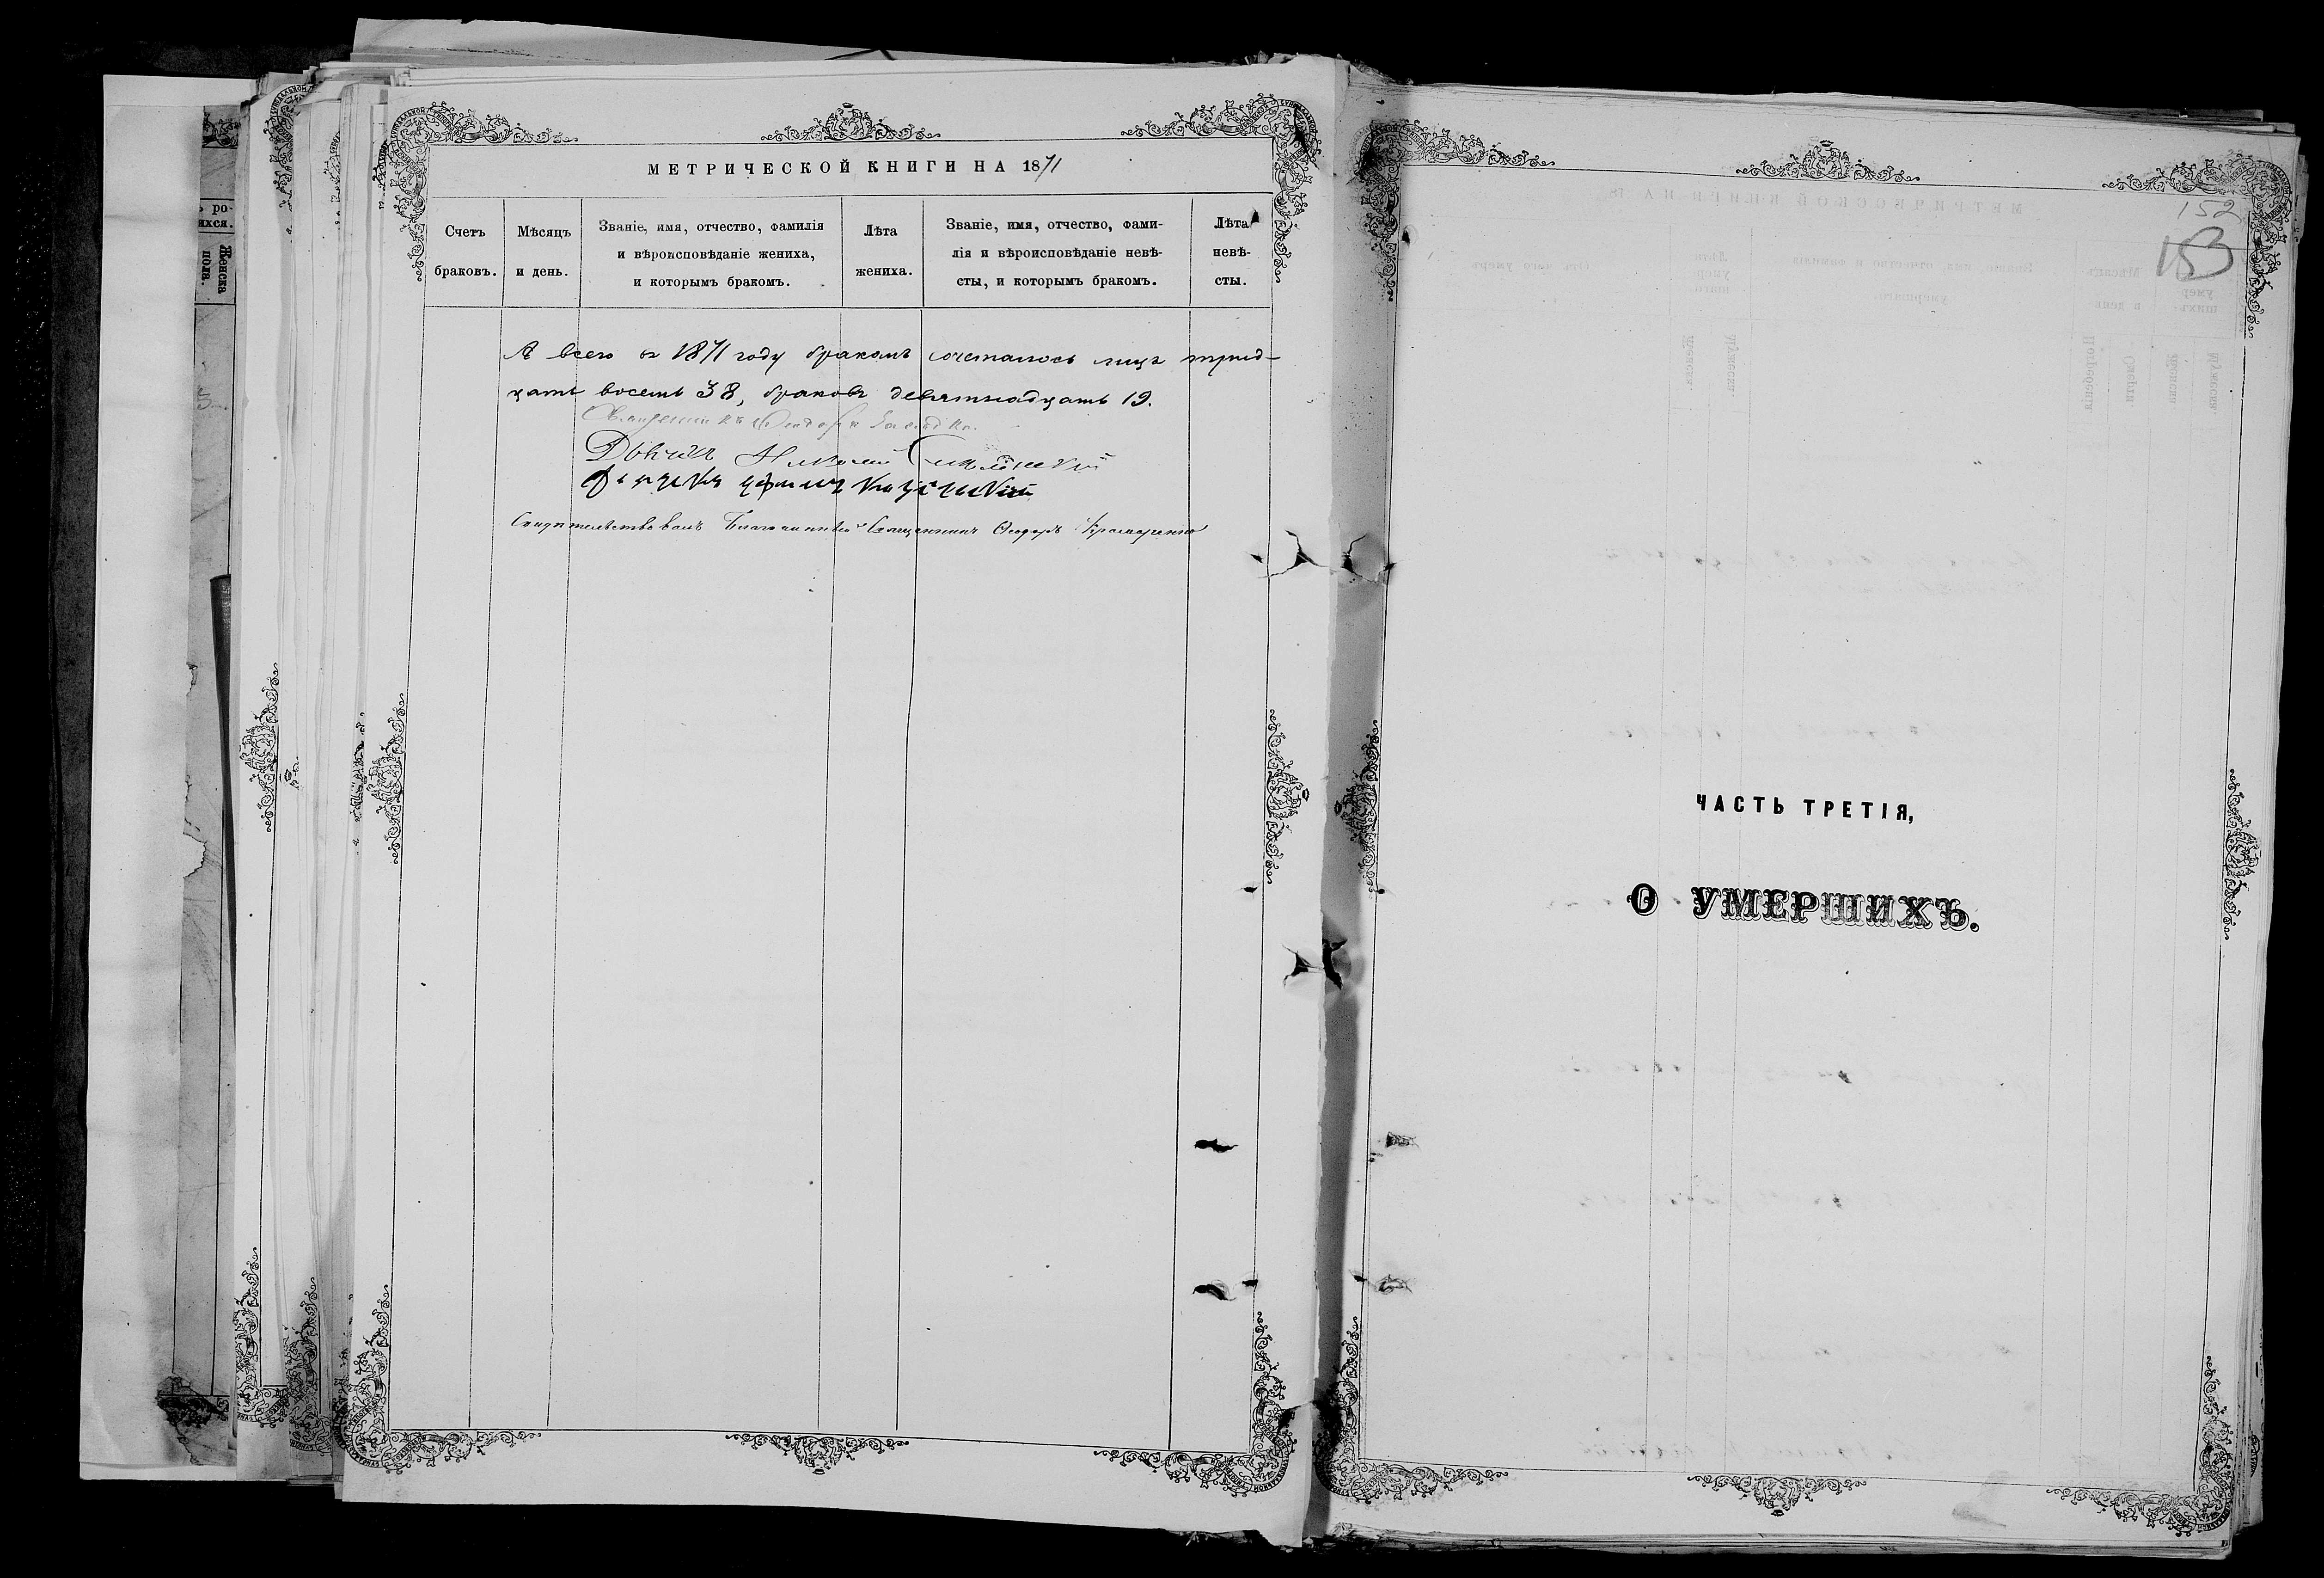 МЕТРИЧЕСКОЙ КНИГИ НА 1871
Счетъ браковъ.
Мѣсяцъ и день.
Званіе, имя, отчество, фамилія
и вѣроисповѣданіе жениха,
и которымъ бракомъ.
Лѣта жениха.
Званіе, имя, отчество, фами-
лія и вѣроисповѣданіе невѣ-
сты, и которымъ бракомъ.
Лѣта невѣ-
сты.
А всего въ 1871 году бракомъ сочеталось лицъ трид-
цать восемь 38, браковъ девятнадцать 19.
Священникъ
Дьячекъ Николай
Свидѣтельствовалъ Благочинный Священникъ Ѳеодоръ Крамаренко
ро-
ихся.
Женска
пола.
152
153
ЧАСТЬ ТРЕТІЯ,
О УМЕРШИХЪ.